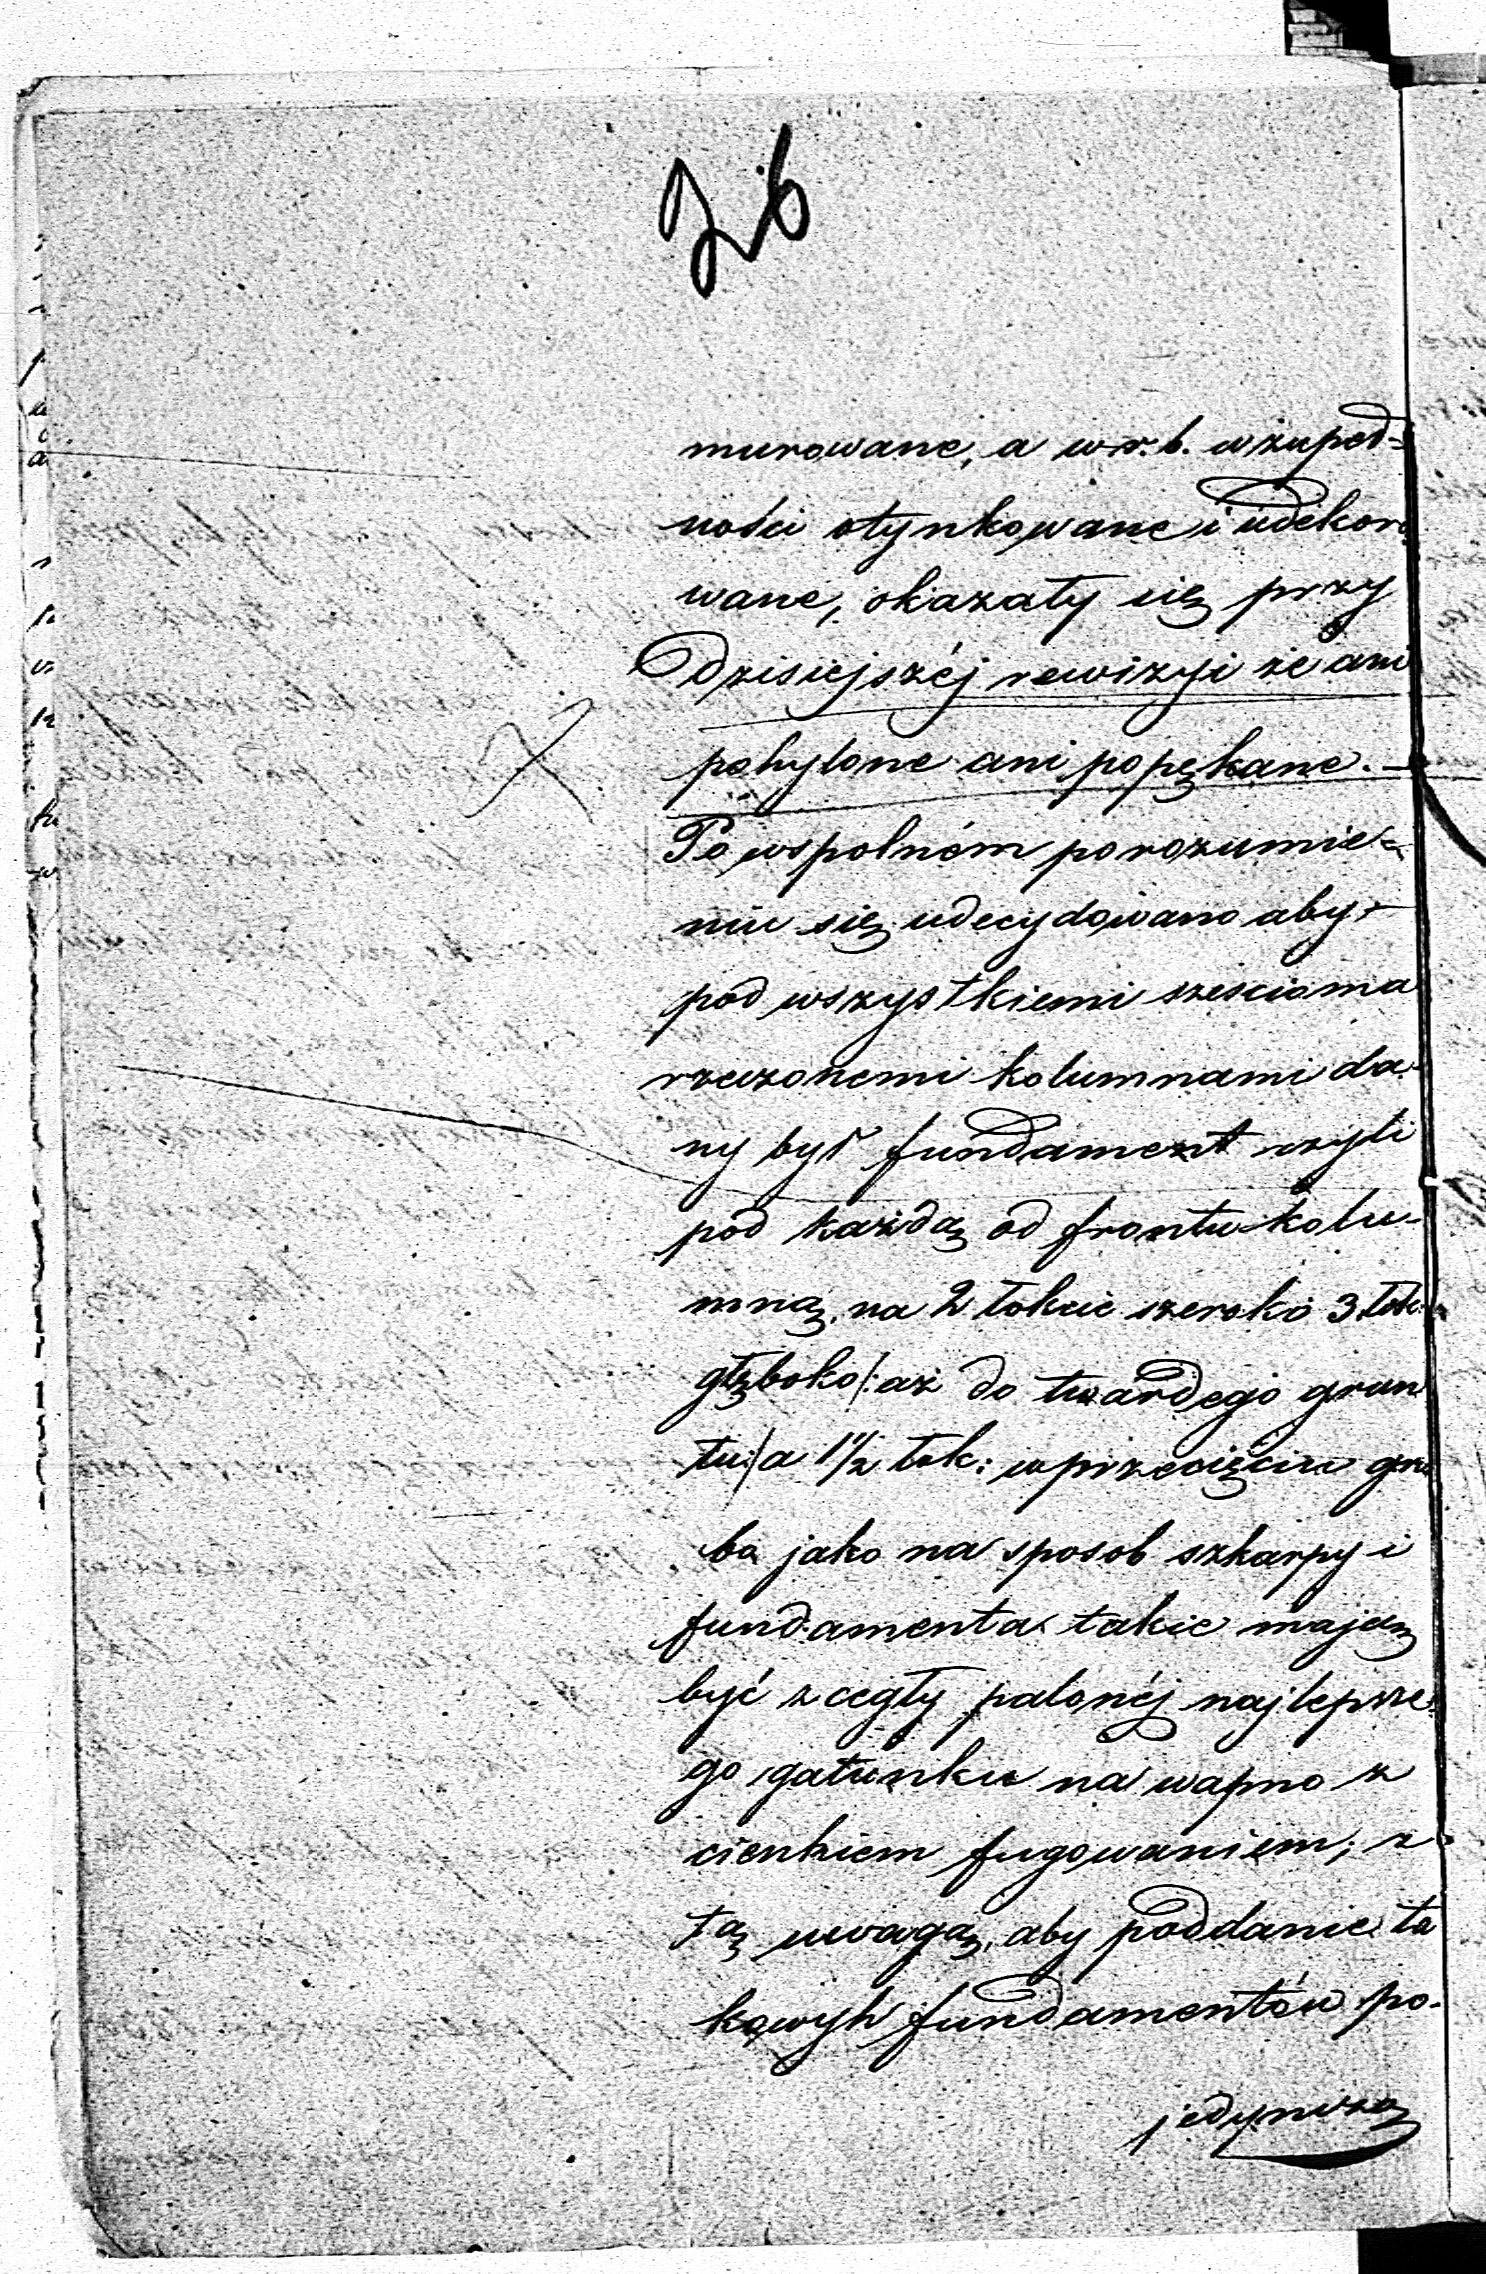 murowane, a w r. b. w zupeł=
ności otynkowane i udekoro
wane, okazały się przy
dzisiejszéj rewizyi że ani
pohylone ani popękane. —
Po wspolném porozumie=
niu się udecydowano aby
pod wszystkiemi sześcioma
rzeczonemi kolumnami da=
ny był fundament czyli
pod każdą od frontu kolu=
mną na 2 łokcie szeroko 3 łok:
głęboko /: aż do twardego grun
tu :/ a 1 1/2 łok: w przecięciu gru
bo jako na sposob szkarpy i
fundamenta takie mają
być z cegły palonéj najlepsze=
go gatunku na wapno z
cienkiem fugowaniem; z
tą uwagą, aby poddanie ta
kowyh fundamentów po=
jedynczą